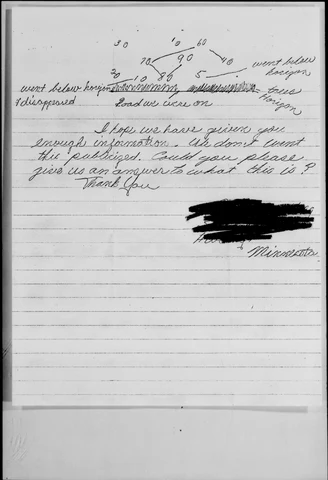 30 10 60
70 90 40 went below
horizon
went below horizon 20 10 80 5 tree
& disappeared road we were on horizon
I hope we have given you
enough information. We don't want
this publicized. Could you please
give us an answer to what this is?
Thank You
Minnesota